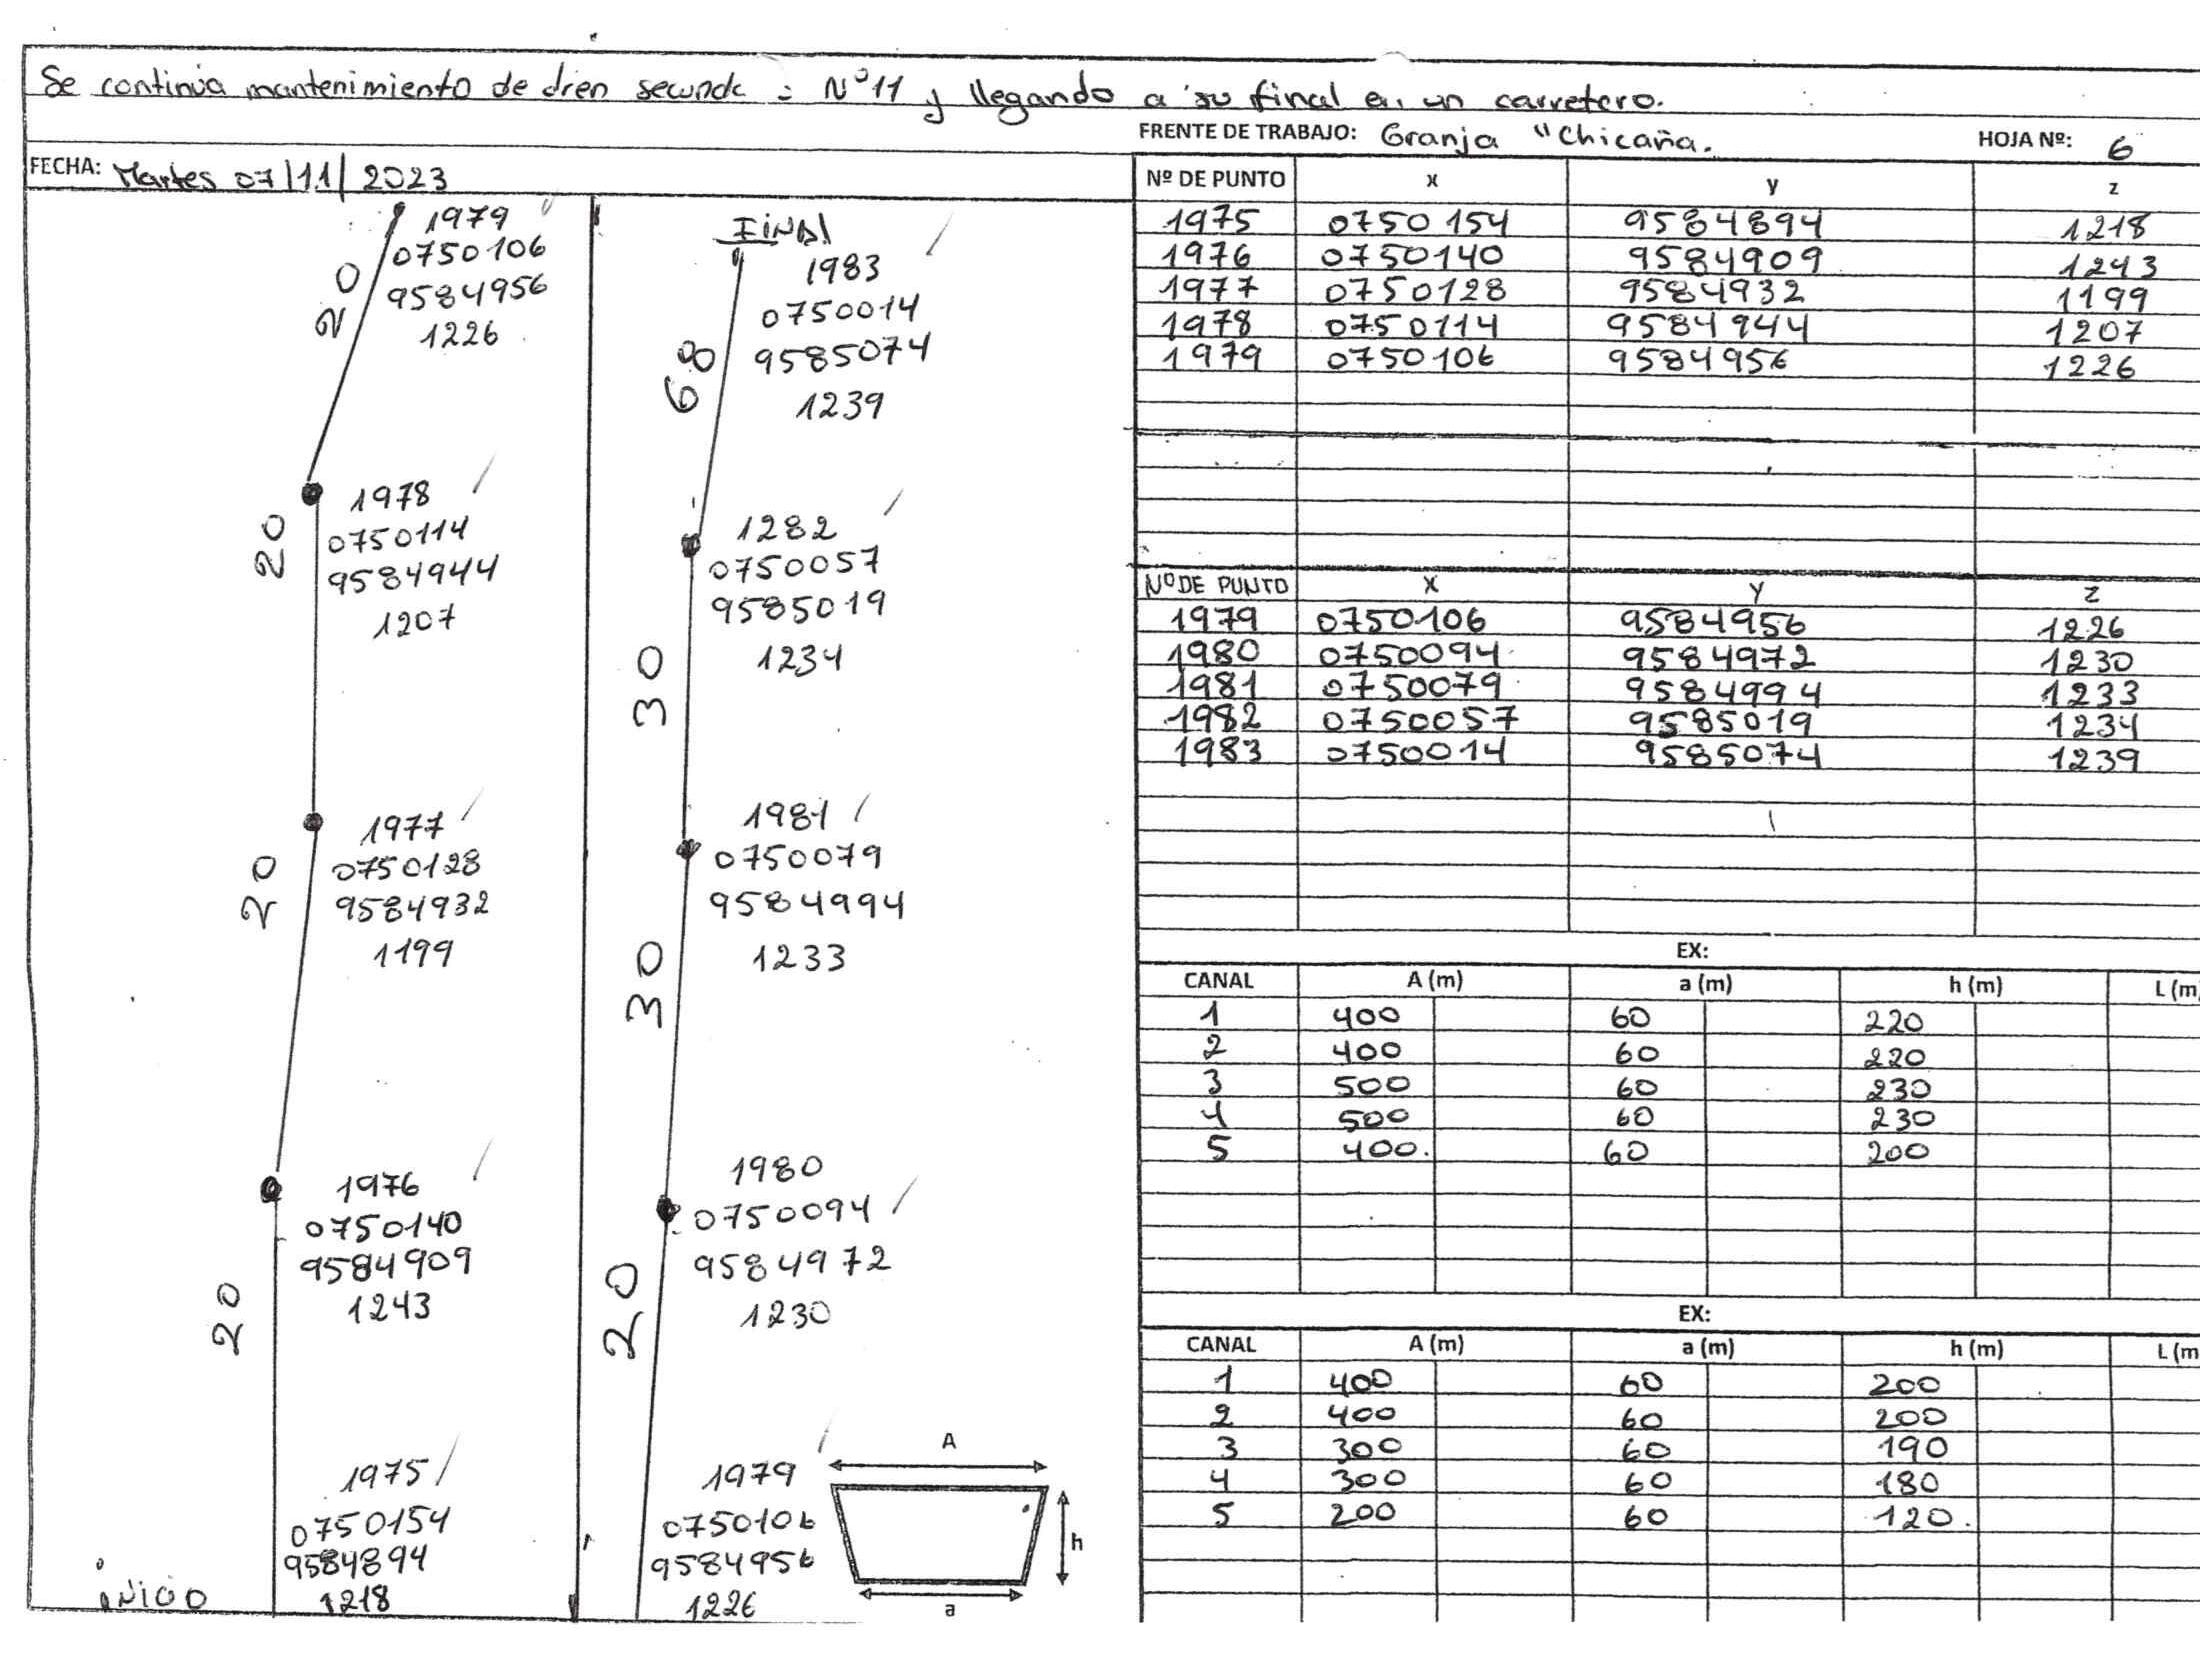 Se continúa mantenimiento de dren secund : Nº 11 y llegando a su final en un carretero.
FRENTE DE TRABAJO: Granja "Chicaña. HOJA Nº: 6
FECHA: Martes 07/11/2023
1979
0750106
9584956
1226
20
1978
0750114
9584944
1207
20
1977
0750128
9584932
1199
20
1976
0750140
9584909
1243
20
1975
0750154
9584894
1218
iNiCiO
FiNAl
1983
0750014
9585074
1239
68
1282
0750057
9585019
1234
30
1981
0750079
9584994
1233
30
1980
0750094
9584972
1230
20
1979
0750106
9584956
1226
A
h
a
Nº DE PUNTO x y z
1975 0750154 9584894 1218
1976 0750140 9584909 1243
1977 0750128 9584932 1199
1978 0750114 9584944 1207
1979 0750106 9584956 1226
Nº DE PUNTO X Y Z
1979 0750106 9584956 1226
1980 0750094 9584972 1230
1981 0750079 9584994 1233
1982 0750057 9585019 1234
1983 0750014 9585074 1239
EX:
CANAL A (m) a (m) h (m) L (m
1 400 60 220
2 400 60 220
3 500 60 230
4 500 60 230
5 400. 60 200
EX:
CANAL A (m) a (m) h (m) L (m
1 400 60 200
2 400 60 200
3 300 60 190
4 300 60 180
5 200 60 120.